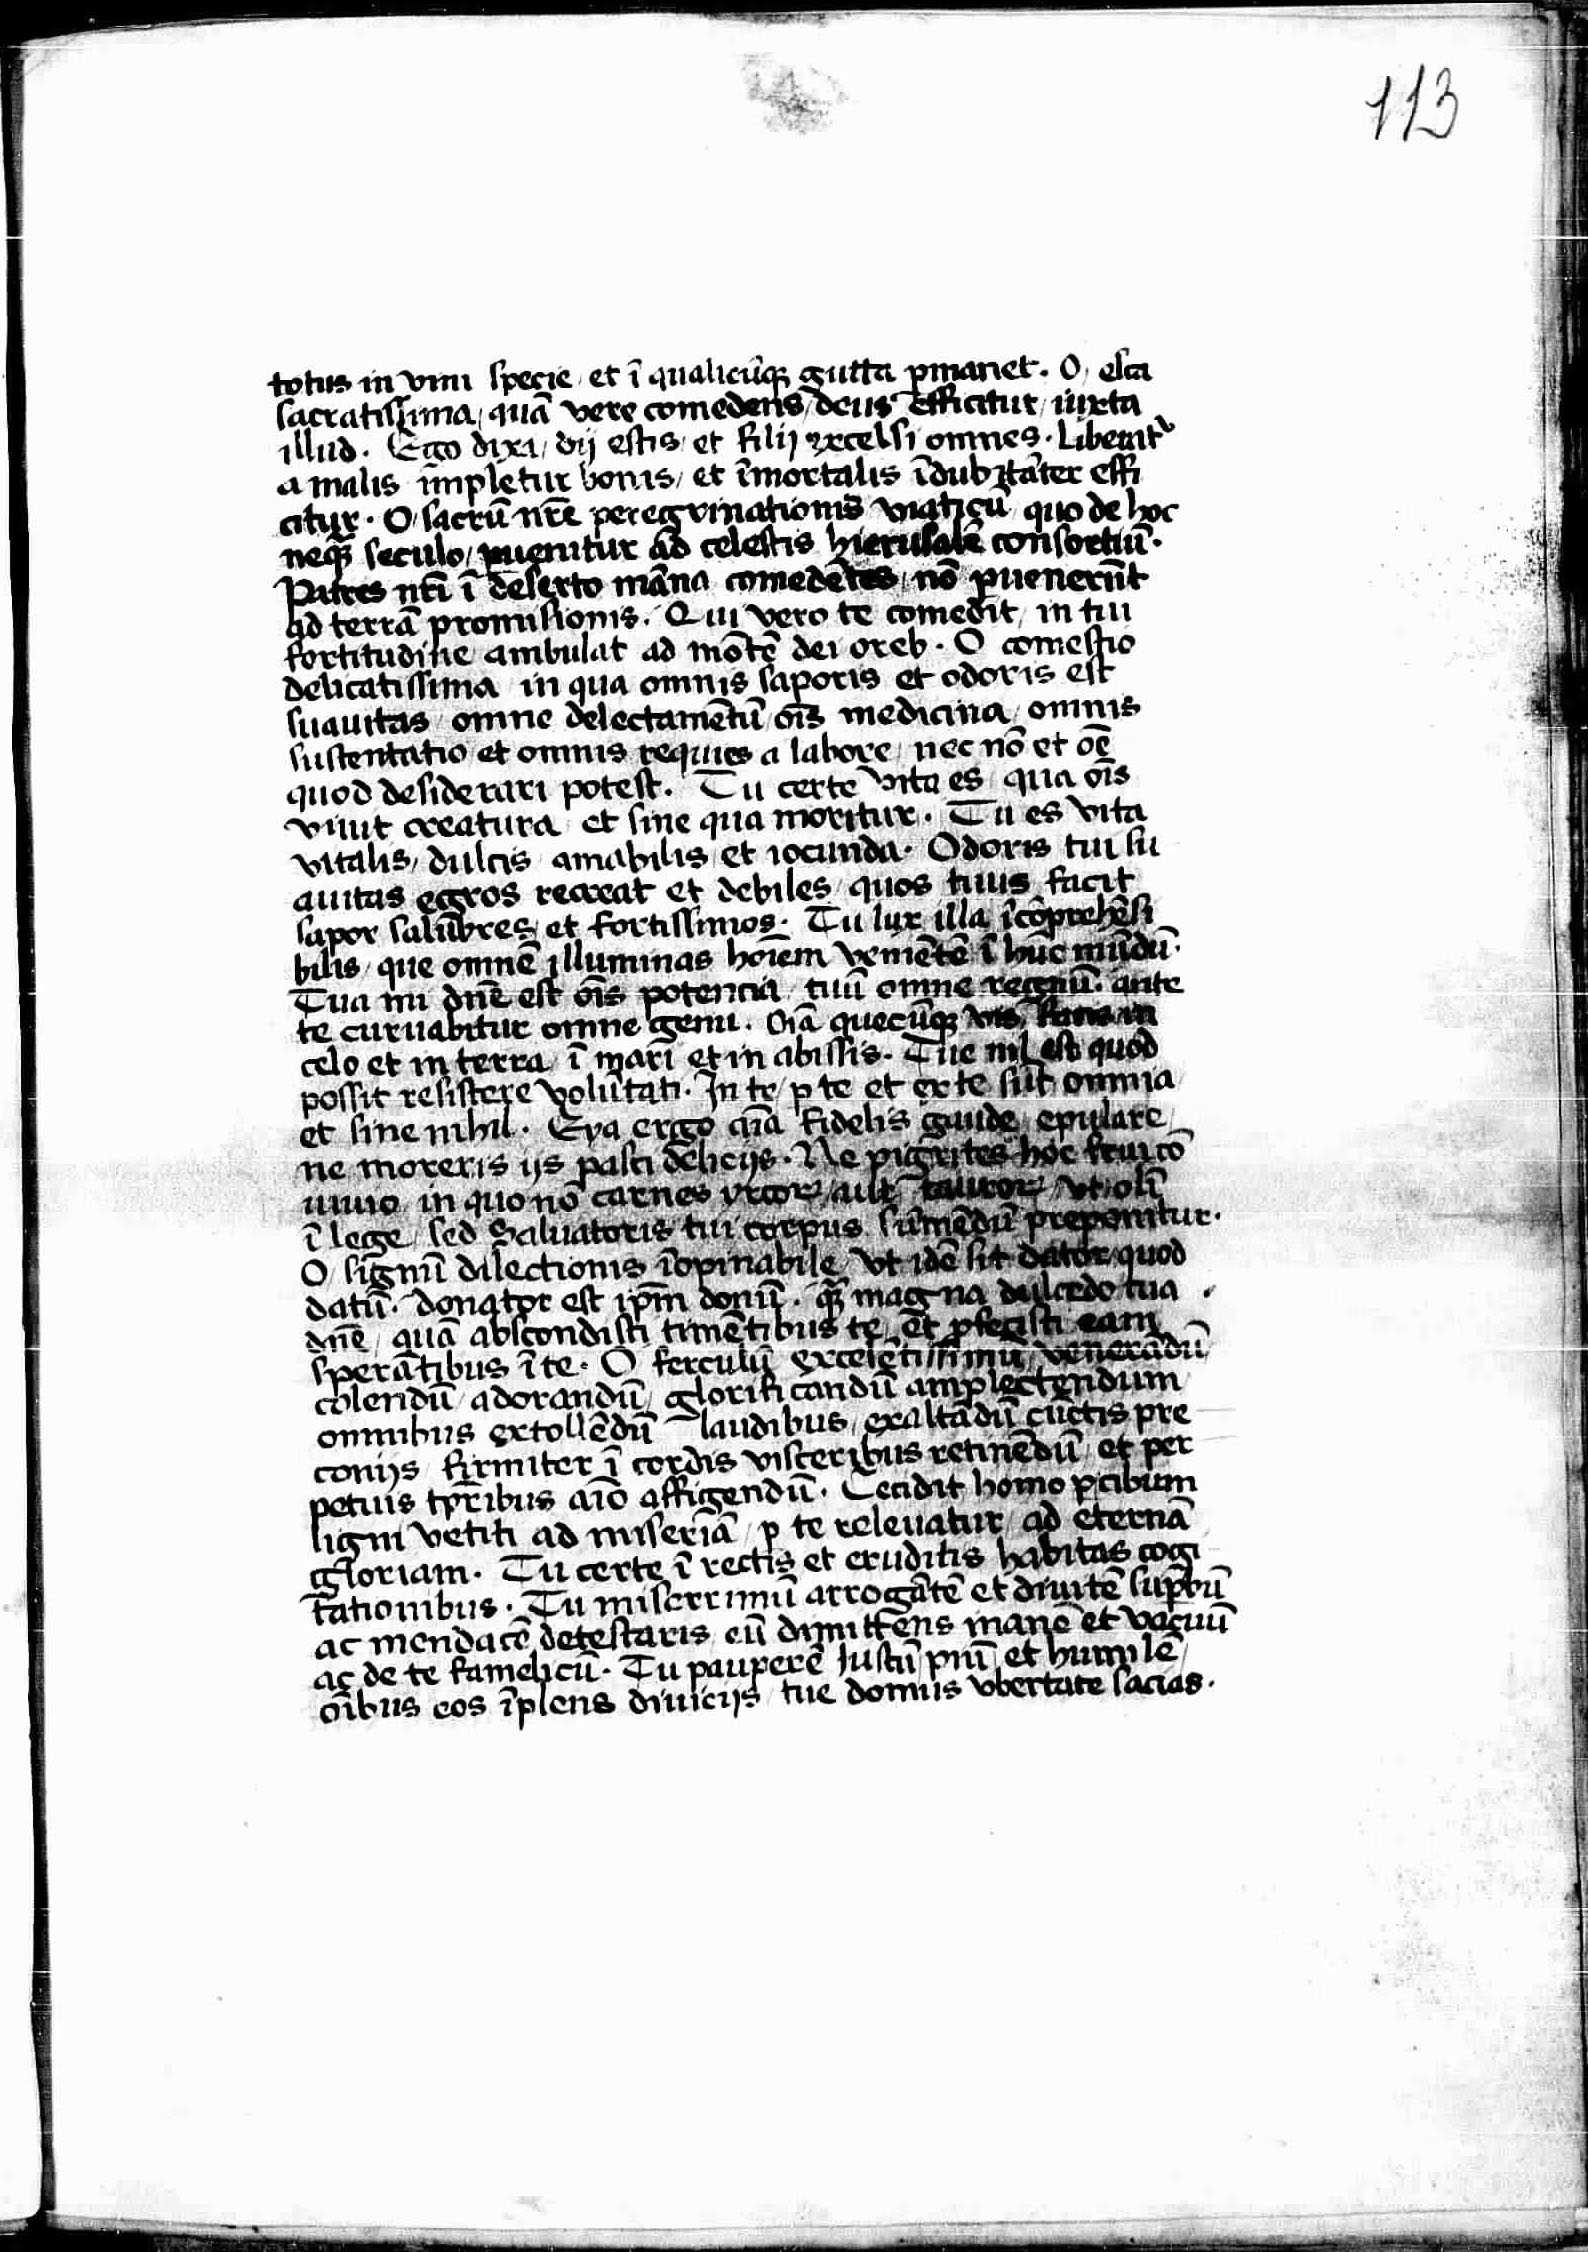 113
totus in vini specie / et ī qualicūq; gutta ꝑmanet. O / esca
sacratissima / quā vere comedens / deus efficitur / iuxta
illud. Ego dixi / dij estis / et filij excelsi omnes. Liberat᷑
a malis impletur bonis / et īmortalis īdubitāter effi
citur. O / sacrū nr̄e peregrinationis viaticū / quo de hoc
nequā seculo / ꝑuenitur ad celestis hierusalē consortiū.
Patres nr̄i ī deserto māna comedētes / nō ꝑuenerūt
ad terrā promissionis. Qui vero te comedit / in tui
fortitudine ambulat ad mōtē dei oreb. O comestio
delicatissima / in qua omnis saporis et odoris est
suauitas / omne delectamētū / oīs medicina / omnis
sustentatio et omnis requies a labore / nec nō et oē
quod desiderari potest. Tu certe vita es / qua oīs
viuit creatura / et sine qua moritur. Tu es vita
vitalis / dulcis / amabilis / et iocunda. Odoris tui su
auitas egros recreat et debiles / quos tuus facit
sapor salūbres / et fortissimos. Tu lux illa īcōprehēsi
bilis / que omnē illuminas hoīem veniētē ī hūc mūdū.
Tua mi dn̄e est oīs potencia / tuū omne regnū. ante
te curuabitur omne genu. Oīā quecūq; vis / facis in
celo et in terra / ī mari et in abissis. Tue nil est quod
possit resistere volūtati. In te / ꝑ te et ex te sūt omnia
et sine nihil. Eya ergo aīa fidelis gaude / epulare /
ne moreris ijs pasci delicijs. Ne pigrites hoc frui cō
uiuio in quo nō carnes yrcoꝝ / aut tauroꝝ / vt olī
ī lege / sed Saluatoris tui corpus sūmēdū preponitur.
O / signū dilectionis īopinabile / vt idē sit dator / quod
datū. donator est ip̄m donū. qꝫ magna dulcedo tua
dn̄e / quā abscondisti timētibus te / et ꝑfecisti eam
sperātibus ī te. O ferculū excelētissimū / venerādū
colendū / adorandū / glorificandū amplectendum
omnibus extollēdū laudibus / exaltādū cūctis pre
conijs / firmiter ī cordis visceribus retinēdū / et per
petuis tp̄ribus aīo affigendū. Cecidit homo ꝑ cibum
ligni vetiti ad miseriā / ꝑ te releuatur / ad eternā
gloriam. Tu certe ī rectis et eruditis habitas cogi
tationibus. Tu miserrimū arrogātē et diuitē suꝑbū
ac mendacē detestaris / eū dimittens inanē et vacuū
ac de te famelicū. Tu pauperē Iustū piū et humilē /
oībus eos īplens diuicijs / tue domus vbertate sacias.